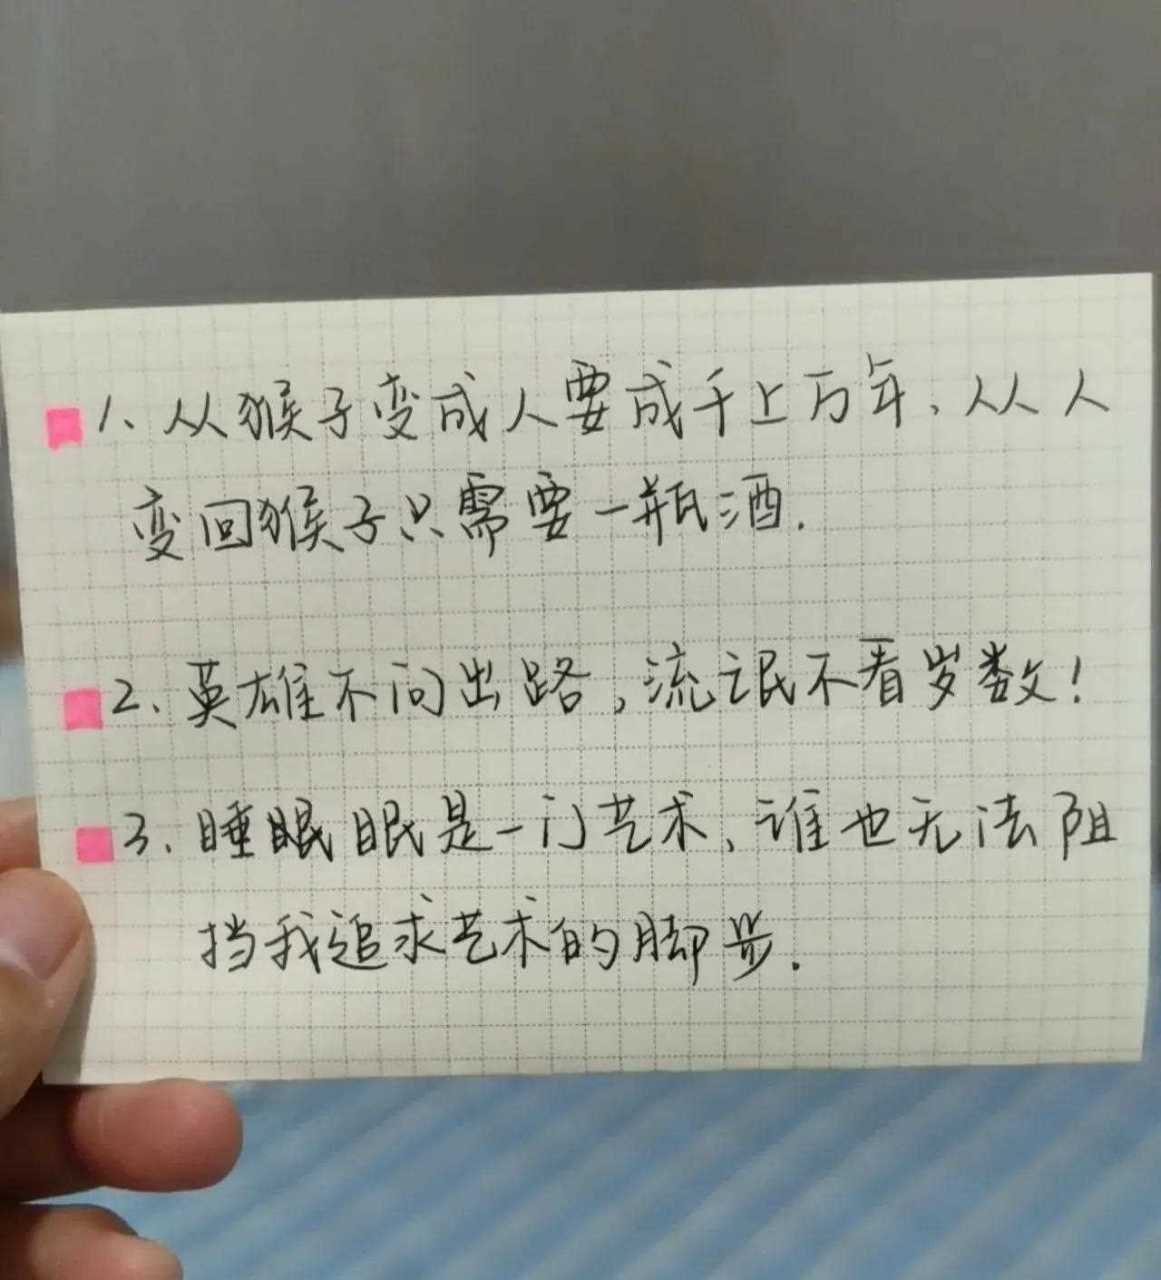 1、从猴子变成人要成千上万年、从人
变回猴子只需要一瓶酒.
2、英雄不问出路,流氓不看岁数!
3、睡眠眠是一门艺术、谁也无法阻
挡我追求艺术的脚步.